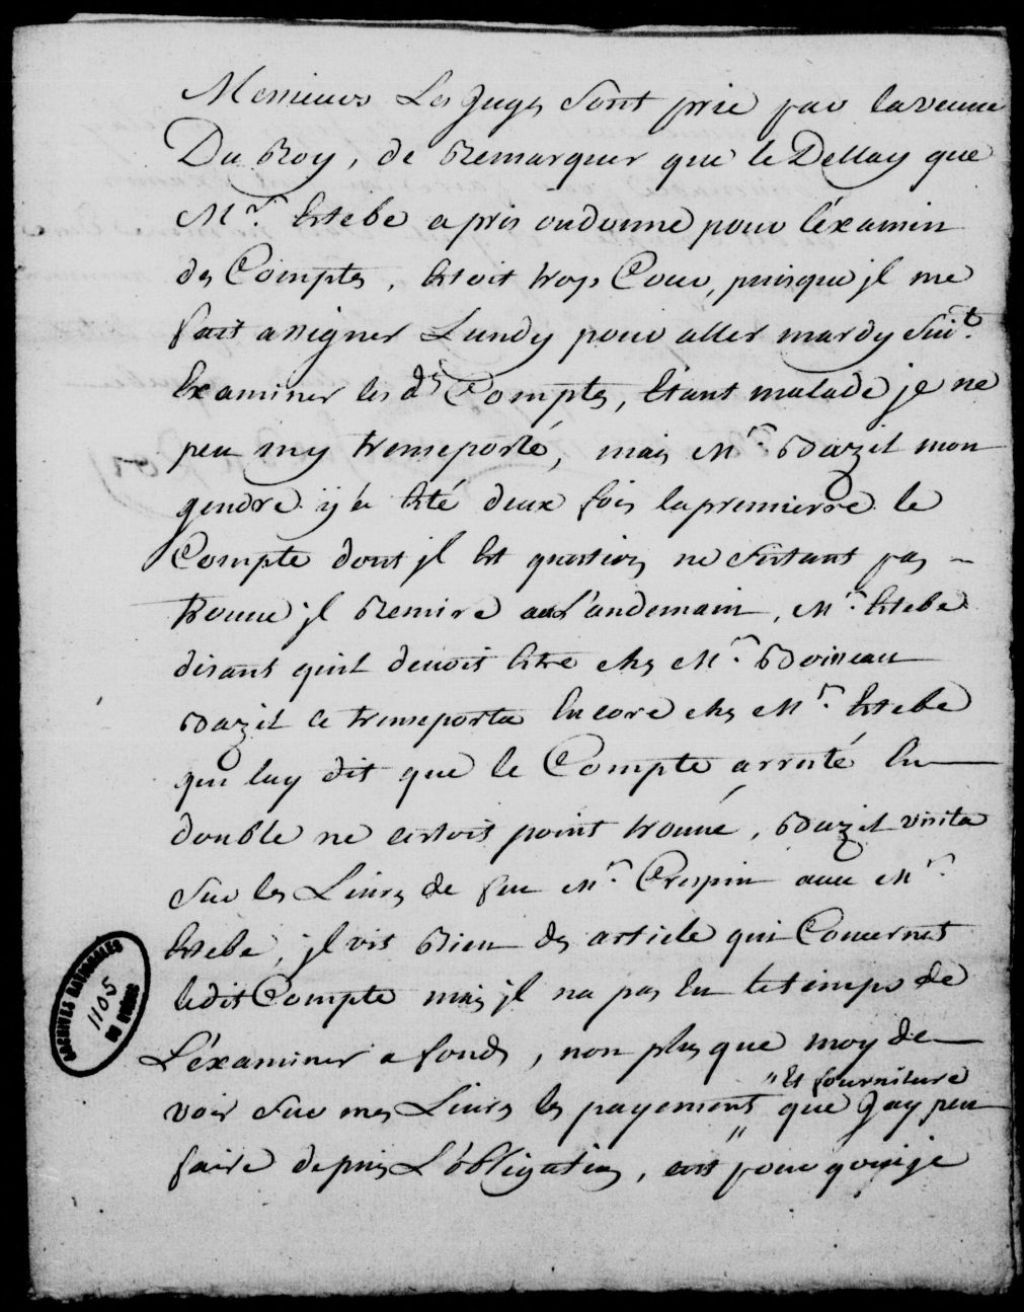 Messieurs Les Juges sont prie par la veuve
Du Roy, de Remarquer que le Dellay que
Mr. Estebe a pris ou donne pour l'éxamin
des Comptes, Estoit trop Cour, puisque jl me
fait assigner Lundy pour aller mardy Suit.
Examiner les ds Comptes, Etant malade je ne
peu my trensporté, mais Mr. Bazil mon
gendre ÿ a Eté deux fois la premierre le
Compte dont jl Est question ne S'estant pas
trouve jl Remire au L'andemain, Mr. Estebe
disant quil devoit Etre ches Mr. Boisseau
Bazil ce trensporta Encore ches Mr. Estebe
qui luy dit que le Compte arresté En
double ne cestoit point trouvé, Bazil visita
Sur les Livres de feu Mr. Crespin avec Mr.
Estebe, jl vit Bien des article qui Concernet
ledit Compte mais jl na pas Eu le temps de
L'éxaminer a fonds, non plus que moy de
" Et fourniture
voir Sur mes Livres les payement " que Jay peu
faire depuis L'obligation, cest pour quoyje
ARCHIVES NATIONALES
1105
DU QUÉBEC